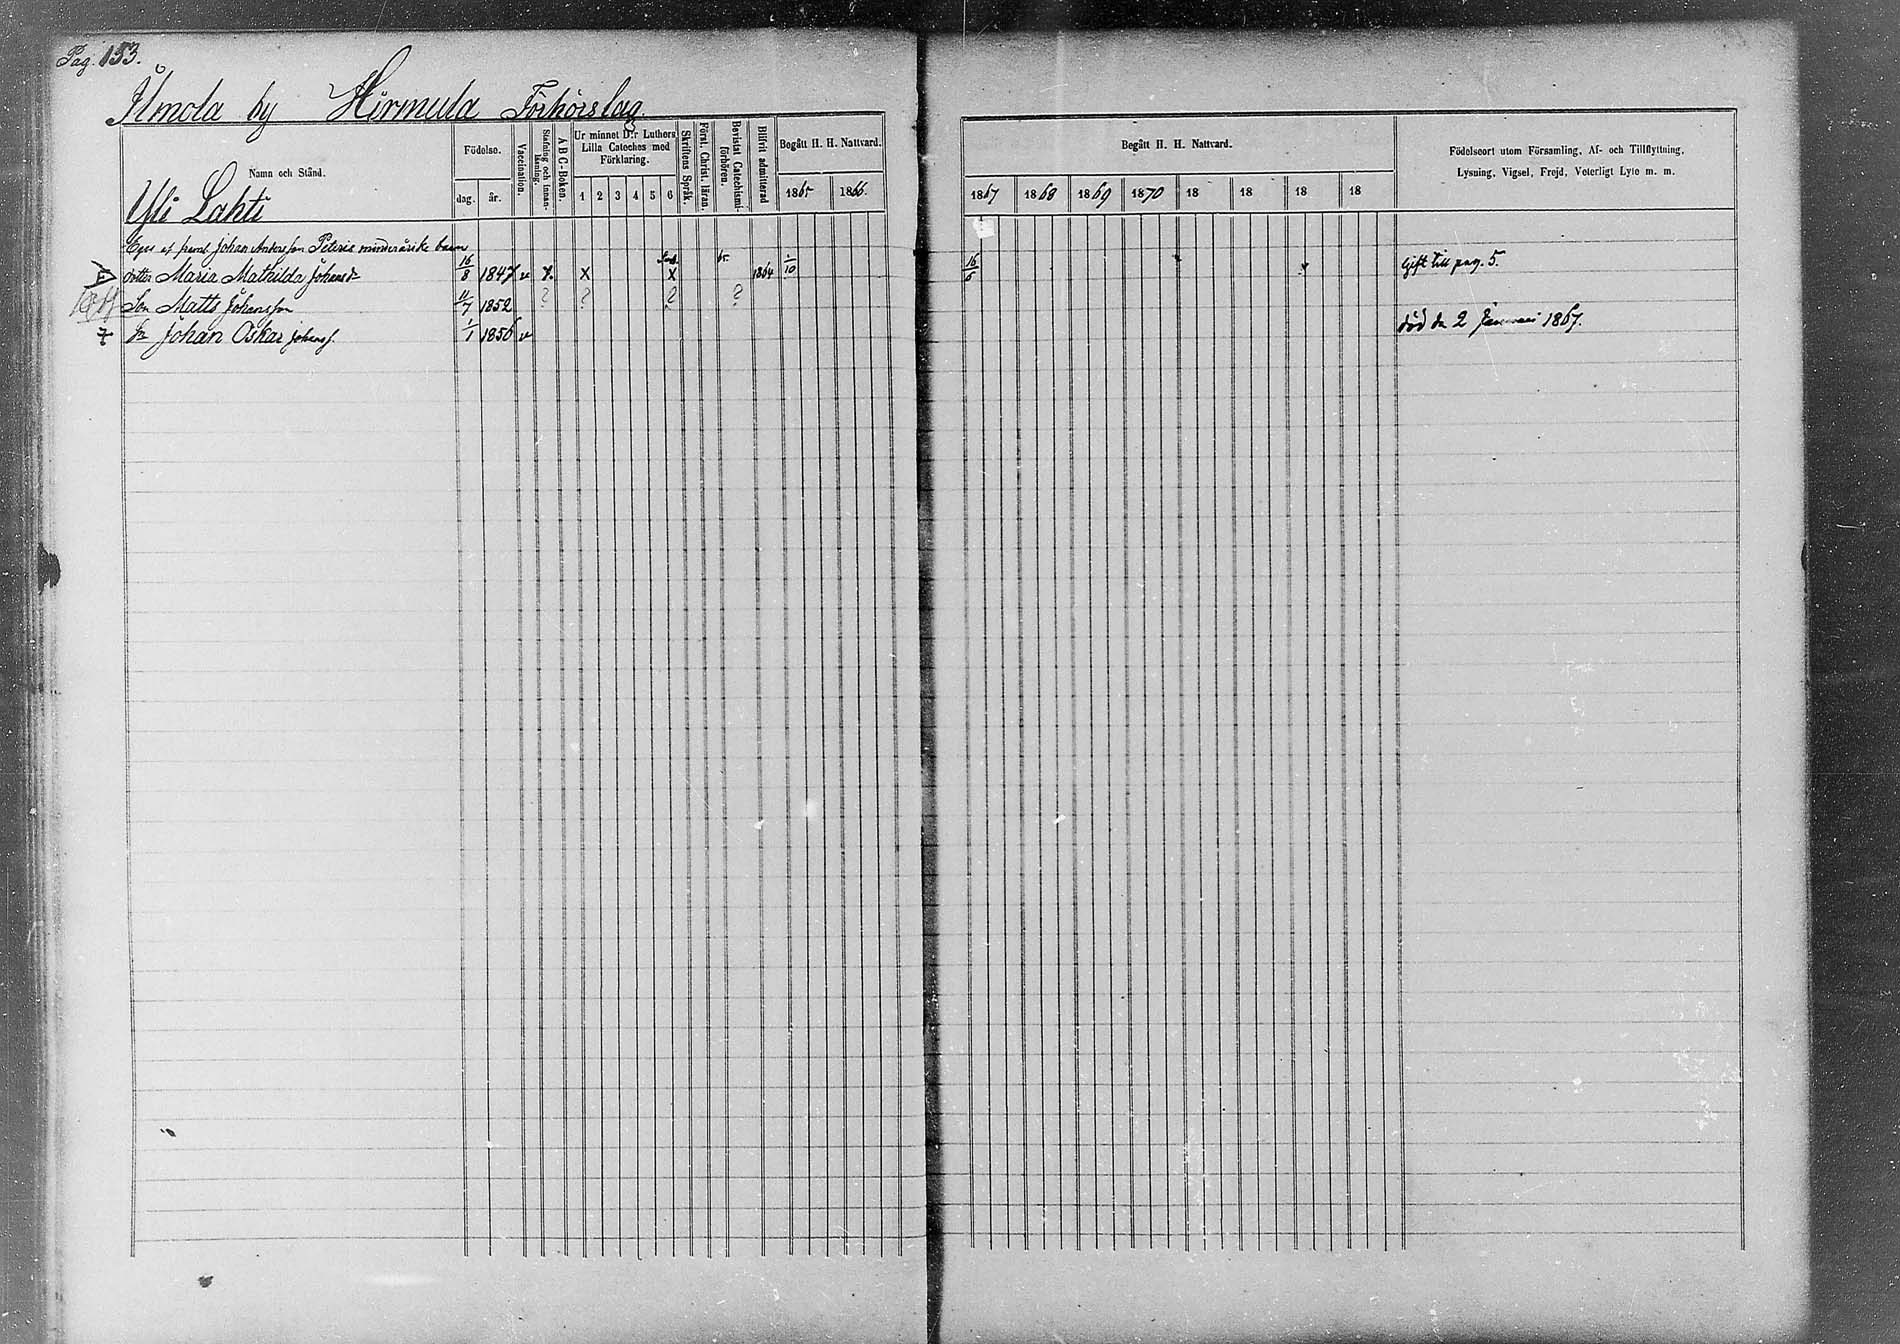 Pag. 153.
Ilmola by Hirmula Förhörslag
Namn och Stånd.
Yli Lahti
Födelse.
dag.
år.
Vaccination.
Stafning och innan-läsning.
A B C-Boken.
Ur minnet D:r Luthers Lilla Cateches med Förklaring.
1 2 3 4 5 6
Skriftens Språk.
Först. Christ. läran.
Bevistat Catechismi-förhören.
Blifvit admitterad
Begått H. H. Nattvard.
1865 1866
Begått H. H. Nattvard.
1867 1868 1869 1870 18 18 18 18
Födelseort utom Församling, Af- och Tillflyttning,
Lysning, Vigsel, Frejd, Veterligt Lyte m. m.
Johan Andersson Peteris minderårike barn
dotter Maria Mathilda Johansdr 16/8 1847 v x. x x 65 1864 1/10 16/6 Gift till pag. 5.
Son Matts Johansson 11/7 1852 ? ? ? ?
Sn Johan Oskar Johanss. 1/1 1856 v död den 2 Januari 1867.